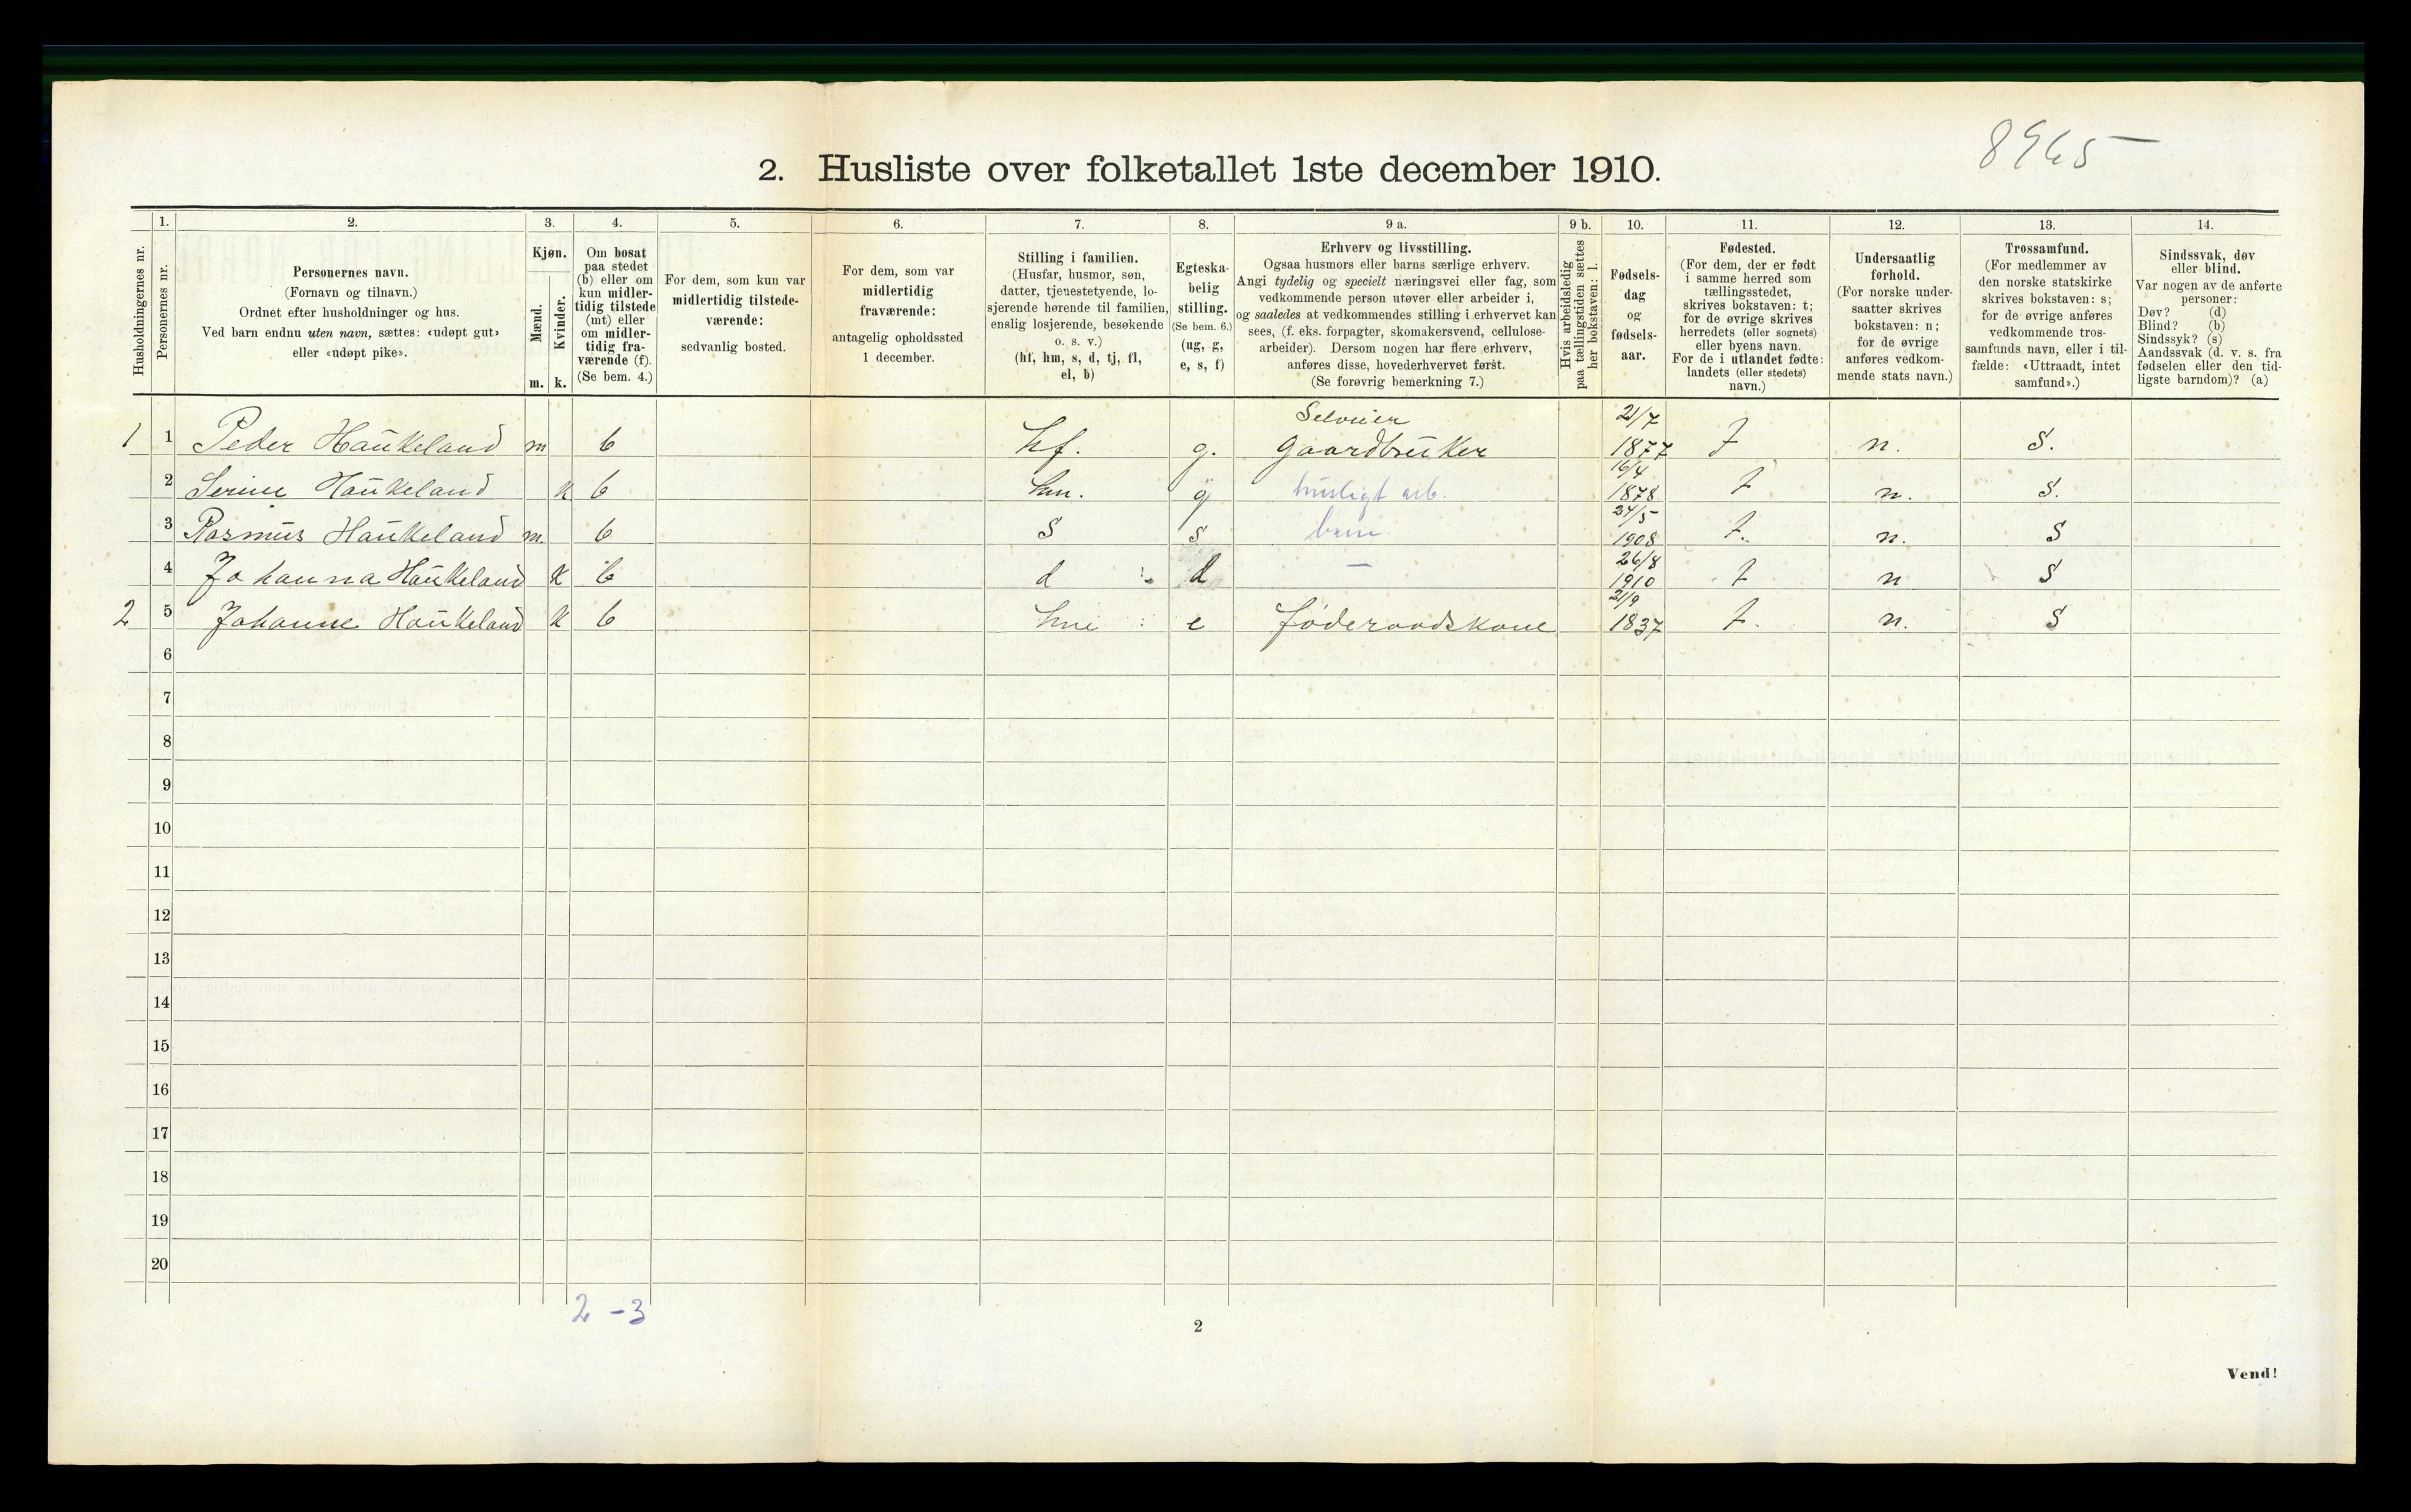 8965
2. Husliste over folketallet 1ste december 1910.
1. 2. 3. 4. 5. 6. 7. 8. 9 a. 9 b. 10. 11. 12. 13. 14.
Husholdningernes nr.
Personernes nr.
Personernes navn.
(Fornavn og tilnavn.)
Ordnet efter husholdninger og hus.
Ved barn endnu uten navn, sættes: «udøpt gut»
eller «udøpt pike».
Kjøn.
Mænd.
Kvinder.
m. k.
Om bosat
paa stedet
(b) eller om
kun midler-
tidig tilstede
(mt) eller
om midler-
tidig fra-
værende (f).
(Se bem. 4.)
For dem, som kun var
midlertidig tilstede-
værende:
sedvanlig bosted.
For dem, som var
midlertidig
fraværende:
antagelig opholdssted
1 december.
Stilling i familien.
(Husfar, husmor, søn,
datter, tjenestetyende, lo-
sjerende hørende til familien,
enslig losjerende, besøkende
o. s. v.)
(hf, hm, s, d, tj, fl,
el, b)
Egteska-
belig
stilling.
(Se bem. 6.)
(ug, g,
e, s, f)
Erhverv og livsstilling.
Ogsaa husmors eller barns særlige erhverv.
Angi tydelig og specielt næringsvei eller fag, som
vedkommende person utøver eller arbeider i,
og saaledes at vedkommendes stilling i erhvervet kan
sees, (f. eks. forpagter, skomakersvend, cellulose-
arbeider). Dersom nogen har flere erhverv,
anføres disse, hovederhvervet først.
(Se forøvrig bemerkning 7.)
Hvis arbeidsledig
paa tællingstiden sættes
her bokstaven: l.
Fødsels-
dag
og
fødsels-
aar.
Fødested.
(For dem, der er født
i samme herred som
tællingsstedet,
skrives bokstaven: t;
for de øvrige skrives
herredets (eller sognets)
eller byens navn.
For de i utlandet fødte:
landets (eller stedets)
navn.)
Undersaatlig
forhold.
(For norske under-
saatter skrives
bokstaven: n;
for de øvrige
anføres vedkom-
mende stats navn.)
Trossamfund.
(For medlemmer av
den norske statskirke
skrives bokstaven: s;
for de øvrige anføres
vedkommende tros-
samfunds navn, eller i til-
fælde: «Uttraadt, intet
samfund».)
Sindssvak, døv
eller blind.
Var nogen av de anførte
personer:
Døv? (d)
Blind? (b)
Sindssyk? (s)
Aandssvak (d. v. s. fra
fødselen eller den tid-
ligste barndom)? (a)
Selveier 21/7
1 1 Peder Haukeland m b hf. g. gaardbruker 1877 t n. S.
2 Serine Haukeland k b hm. g husligt arb. 16/4 1878 t n. S.
3 Rasmus Haukeland m. b S s barn 24/5 1908 t. n. S
4 Johanna Haukeland k b d d — 26/8 1910 t n S
2 5 Johanne Haukeland k b e føderaadskone 21/9 1837 t. n. S
6
7
8
9
10
11
12
13
14
15
16
17
18
19
20
2 - 3
2
Vend!